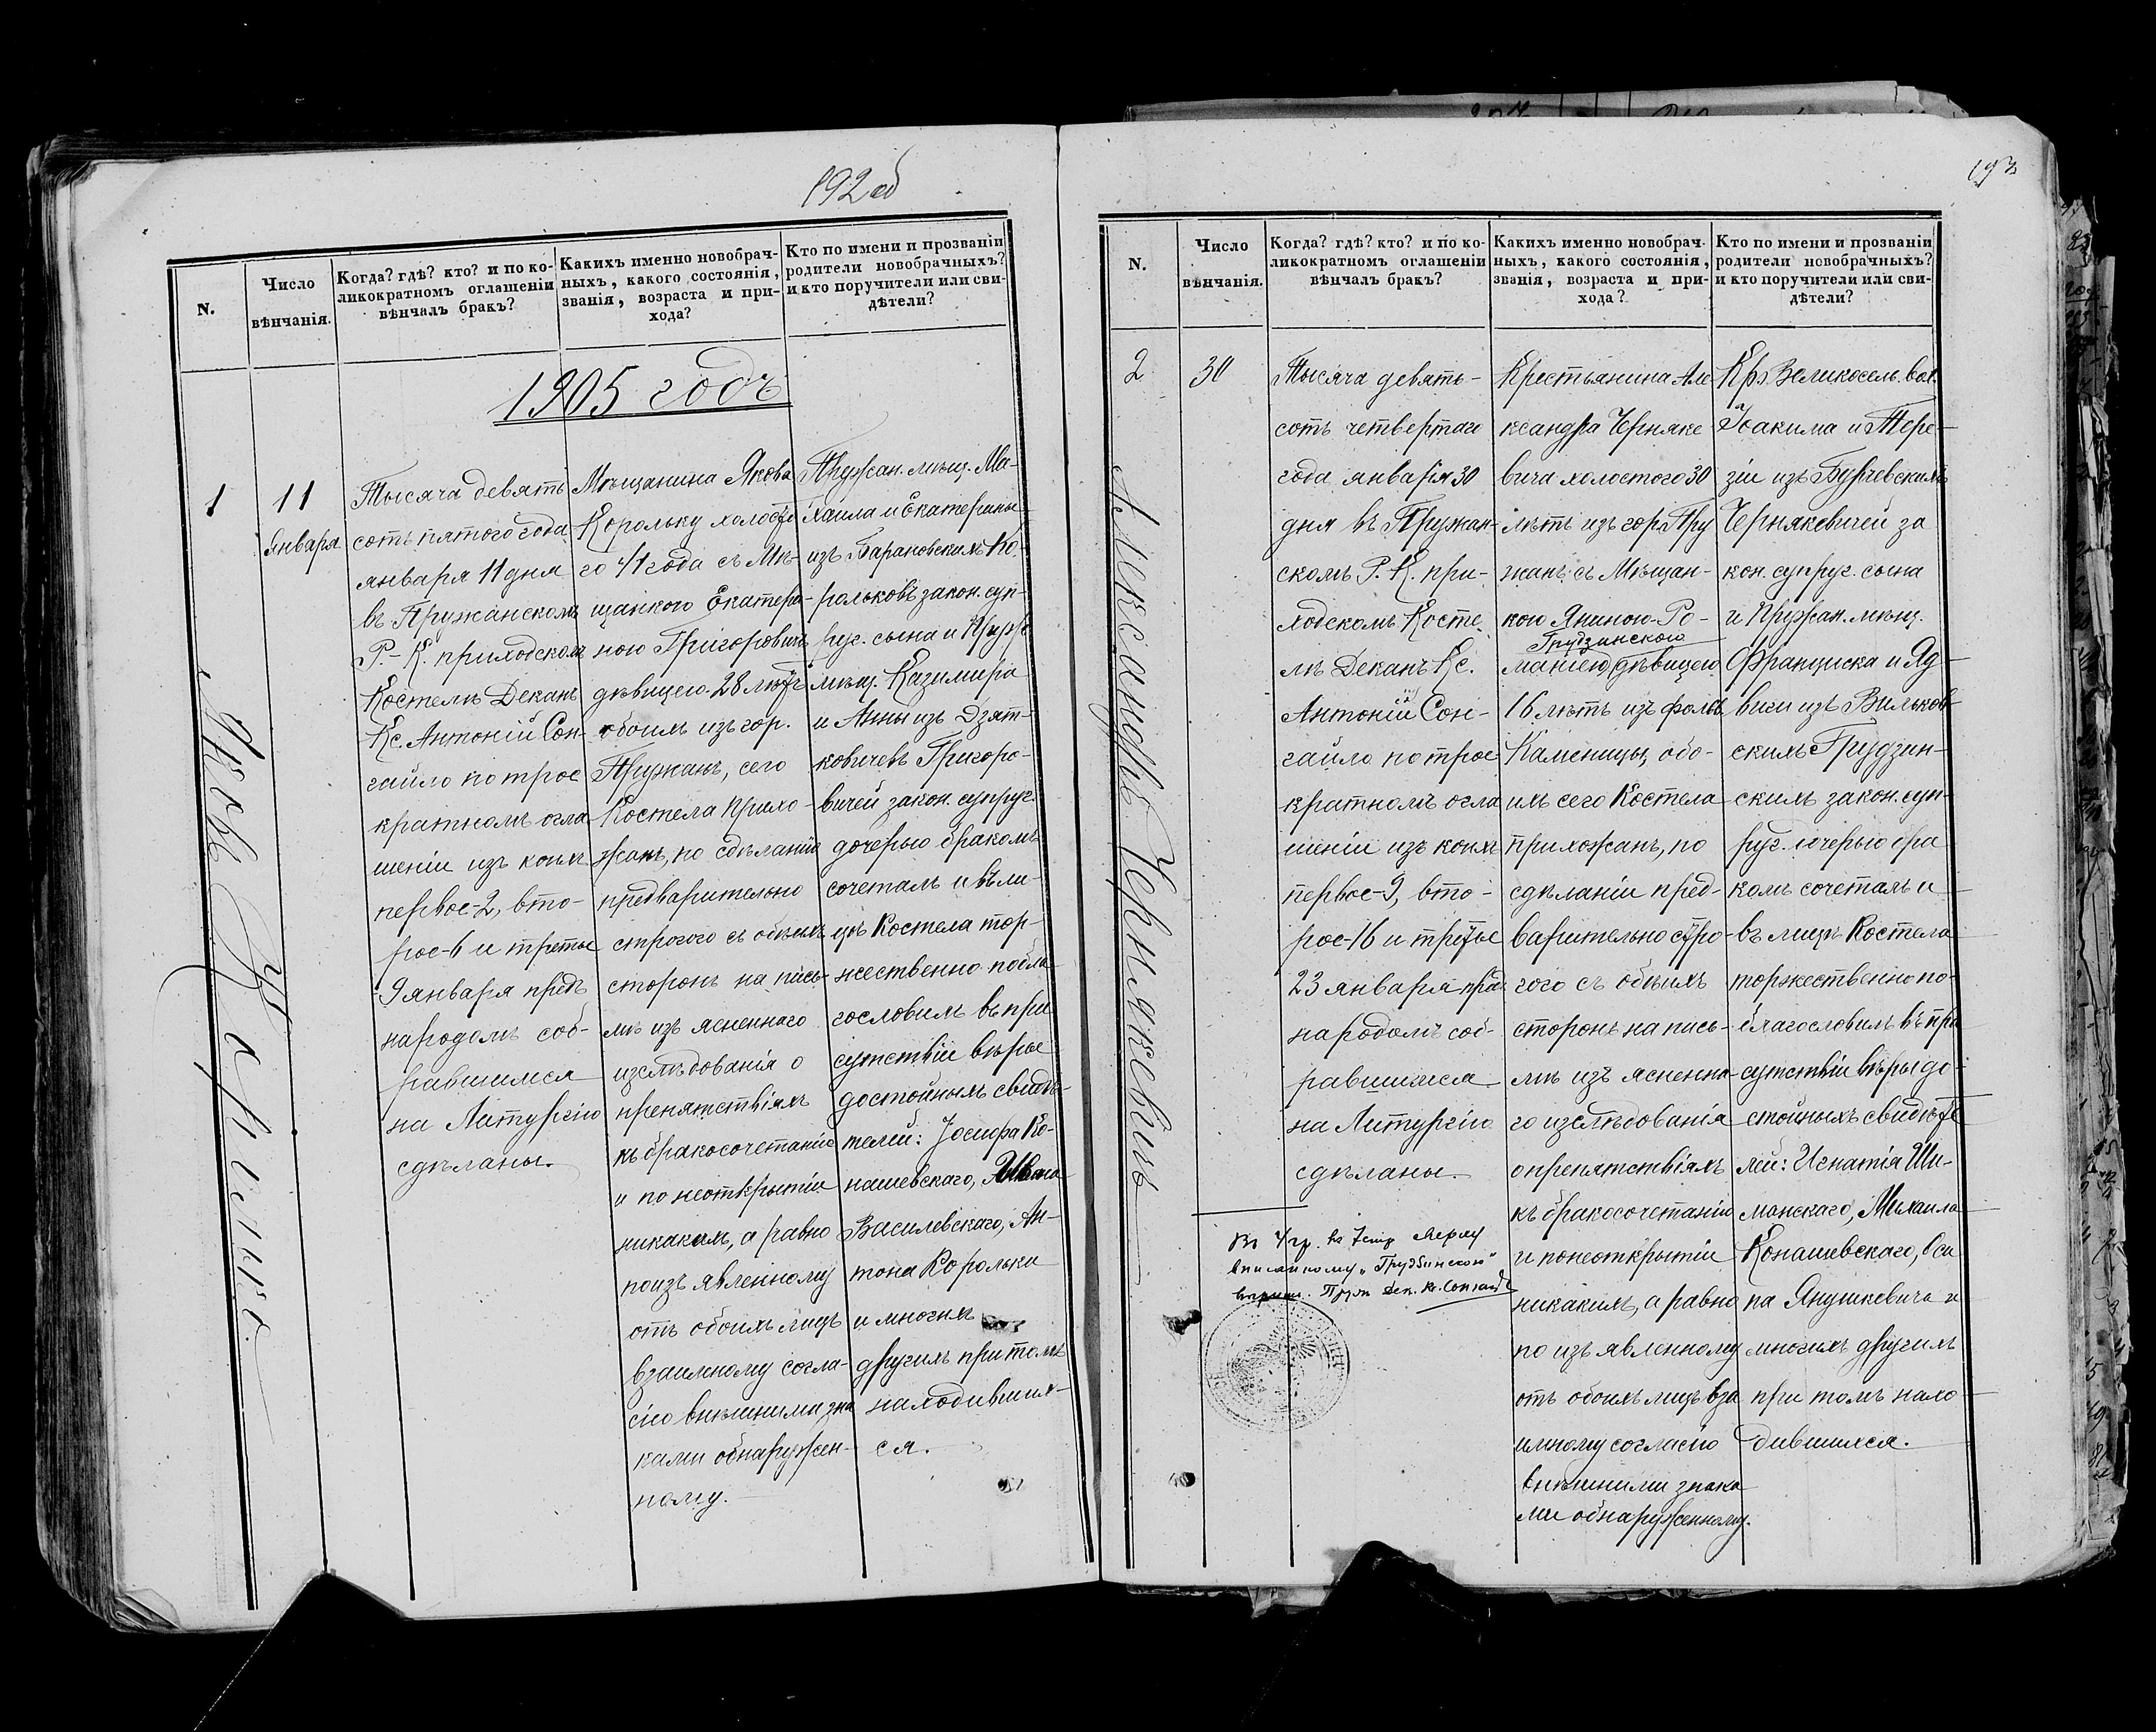 192 об
N.
Число
вѣнчанія.
Когда? гдѣ? кто? и по ко-
ликократномъ оглашеніи
вѣнчалъ бракъ?
Какихъ именно новобрач-
ныхъ, какого состоянія,
званія, возраста и при-
хода?
Кто по имени и прозванію
родители новобрачныхъ?
и кто поручители или сви-
дѣтели?
1905 годъ
1
11
Января
Яковъ Королько.
Тысяча девять
сотъ пятого года
января 11 дня
въ Пружанскомъ
Р.-К. приходскомъ
Костелѣ Деканъ
Кс. Антоній Сон-
гайло по трое
кратномъ огла
шеніи изъ коихъ
первое-2, вто-
рое-6 и третье
9 января предъ
народомъ соб-
равшимся
на Литургію
сдѣланы.
Мѣщанина Якова
Корольку холосто
го 41 года съ Мѣ-
щанкою Екатери-
ною Григоровичъ
дѣвицею 28 лѣтъ
обоихъ изъ гор.
Пружанъ, сего
Костела прихо-
жанъ, по сдѣланіи
предварительно
строгого съ обѣихъ
сторонъ на пись-
мѣ изъ ясненнаго
изслѣдованія о
препятствіяхъ
къ бракосочетанію
и по неоткрытіи
никакихъ, а равно
по изъ явленному
отъ обоихъ лицъ
взаимному согла-
сію внѣшними зна
ками обнаружен-
ному.
Пружан. мѣщ. Ми-
хаила и Екатерины
изъ Барановскихъ Ко-
рольковъ закон. суп-
руг. сына и Пруж.
мѣщ. Казимира
и Анны изъ Дзят-
ковичевъ Григоро-
вичей закон. супруг.
дочерью бракомъ
сочеталъ и въ ли-
цѣ Костела тор-
жественно побла-
гословилъ въ при
сутствіи вѣры
достойныхъ свидѣ-
телей: Іосифа Ко-
нашевскаго, Ивана
Василевскаго, Ан-
тона Корольки
и многихъ
другихъ при томъ
находивших-
ся.
193
N.
Число
вѣнчанія.
Когда? гдѣ? кто? и по ко-
ликократномъ оглашеніи
вѣнчалъ бракъ?
Какихъ именно новобрач-
ныхъ, какого состоянія,
званія, возраста и при-
хода?
Кто по имени и прозваніи
родители новобрачныхъ?
и кто поручители или сви-
дѣтели?
2
30
Александръ Чернякевичъ
Тысяча девять-
сотъ четвертаго
года январія 30
дня въ Пружан-
скомъ Р. К. при-
ходскомъ Косте
лѣ Деканъ Кс.
Антоній Сон-
гайло по трое
кратномъ огла
шеніи изъ коихъ
первое-9, вто-
рое-16 и третье
23 января пред
народомъ соб-
равшимся
на Литургію
сдѣланы.
Крестьянина Але
ксандра Черняке
вича холостого 30
лѣтъ изъ гор. Пру
жанъ съ Мѣщан-
кою Яниною-Ро-
Грудзинскою
маніею дѣвицею
16 лѣтъ изъ фольв.
Каменицы, обо-
ихъ сего Костела
прихожанъ, по
сдѣланіи пред-
варительно стро-
гого съ обѣихъ
сторонъ на пись-
мѣ изъ ясненна-
го изслѣдованія
о препятствіяхъ
къ бракосочетанію
и по неоткрытіи
никакихъ, а равно
по изъ явленному
отъ обоихъ лицъ вза
имному согласію
внѣшними знака
ми обнаруженному.
Кр. Великосель. вол.
Іоакима и Тере-
зіи изъ Бурчевскихъ
Чернякевичей за
кон. супруг. сына
и Пружан. мѣщ.
Франциска и Яд-
виги изъ Вильков-
скихъ Грудзин-
скихъ закон. суп-
руг. дочерью бра
комъ сочеталъ и
въ лицѣ Костела
торжественно по-
благословилъ въ при
сутствіи вѣры до-
стойныхъ свидѣте
лей: Игнатія Ши-
манскаго, Михаила
Конашевскаго, Оси
па Янушкевича и
многихъ другихъ
при томъ нахо-
дившихся.
Въ 4 гр. на 7 стр. сверху
вписанному „Грудзинскою"